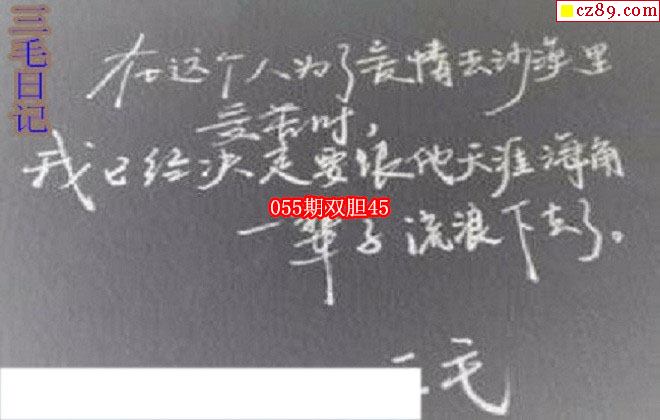 三毛日记
cz89.com
在这个人为了爱情去沙漠里
受苦时，
我已经决定要跟他天涯海角
055期双胆45
一辈子流浪下去了。
三毛